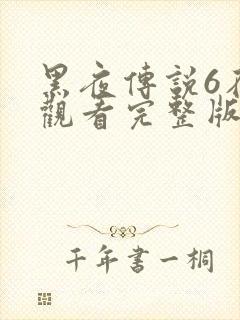 黑夜傳說6在
觀看完整版
千年書一桐